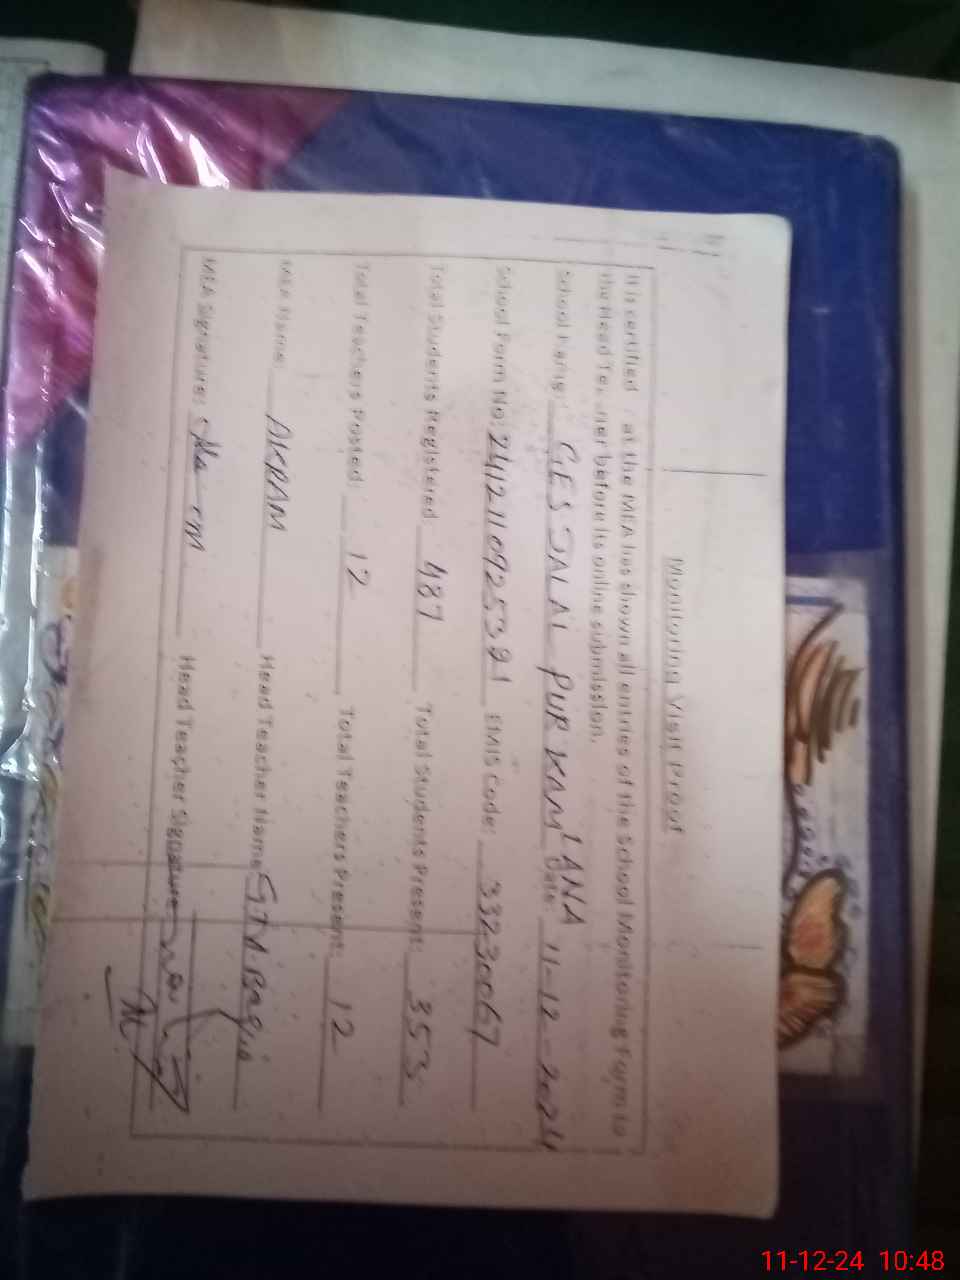 Monitoring Visit Proof
It is certified at the MEA has shown all entries of the School Monitoring Form to
the Head Teacher before its online submission.
School Name: GES JALAL PUR Date: 11-12-2024
School Form No: EMIS Code: 33230067
Total Students Registered 487 Total Students Present: 353
Total Teachers Posted: 12 Total Teachers Present: 12
MEA Name: AKRAM Head Teacher Name:
MEA Signature: Head Teacher Signature
11-12-24 10:48